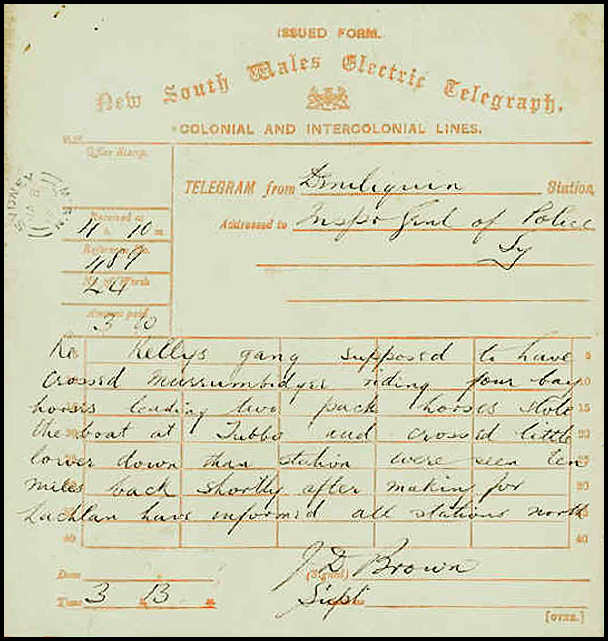 ISSUED FORM.
New South Wales Electric Telegraph.
COLONIAL AND INTERCOLONIAL LINES.
Office Stamp.
SYDNEY
N.S.W
TELEGRAM from Deniliquin Station,
Addressed to Inspr Genl of Police
Sy
Received at
4 h. 10 m.
Reference No.
489
No. of Words
44
Amount paid
3
Re Kellys gang supposed to have 5
crossed Murrumbidgee riding four bay 10
horses leading two pack horses stole 15
the boat at Tubbo and crossed little 20
lower down than station were seen ten 25
miles back shortly after making for 30
Lachlan have informed all stations north 35
40 40
Date
(Signed) J D Brown
Time 3 13
Supt
[OVER.]